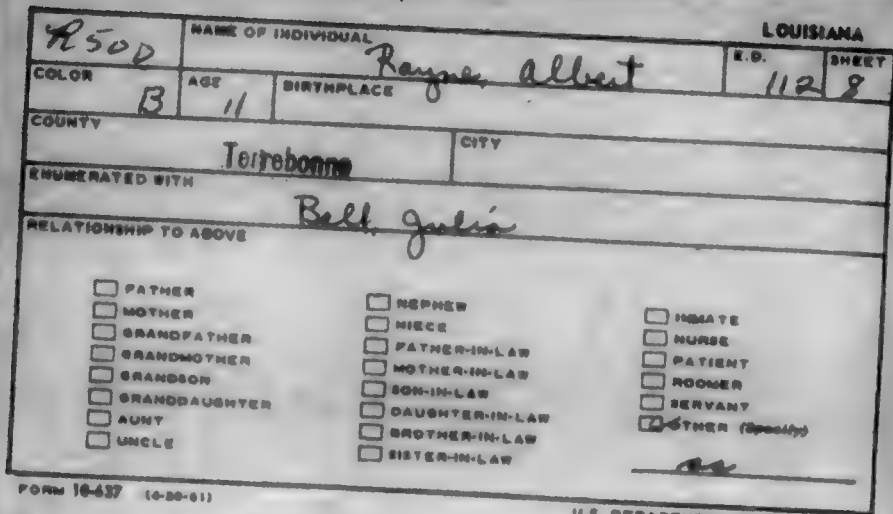 LOUISIANA
R500 NAME OF INDIVIDUAL Rayne, Albert E.D. 112 SHEET 8
COLOR B AGE 11 BIRTHPLACE
COUNTY Terrebonne CITY
ENUMERATED WITH Bell, Julia
RELATIONSHIP TO ABOVE
FATHER
MOTHER
GRANDFATHER
GRANDMOTHER
GRANDSON
GRANDDAUGHTER
AUNT
UNCLE
NEPHEW
NIECE
FATHER-IN-LAW
MOTHER-IN-LAW
SON-IN-LAW
DAUGHTER-IN-LAW
BROTHER-IN-LAW
SISTER-IN-LAW
INMATE
NURSE
PATIENT
ROOMER
SERVANT
OTHER (Specify)
FORM 10-637
U.S.